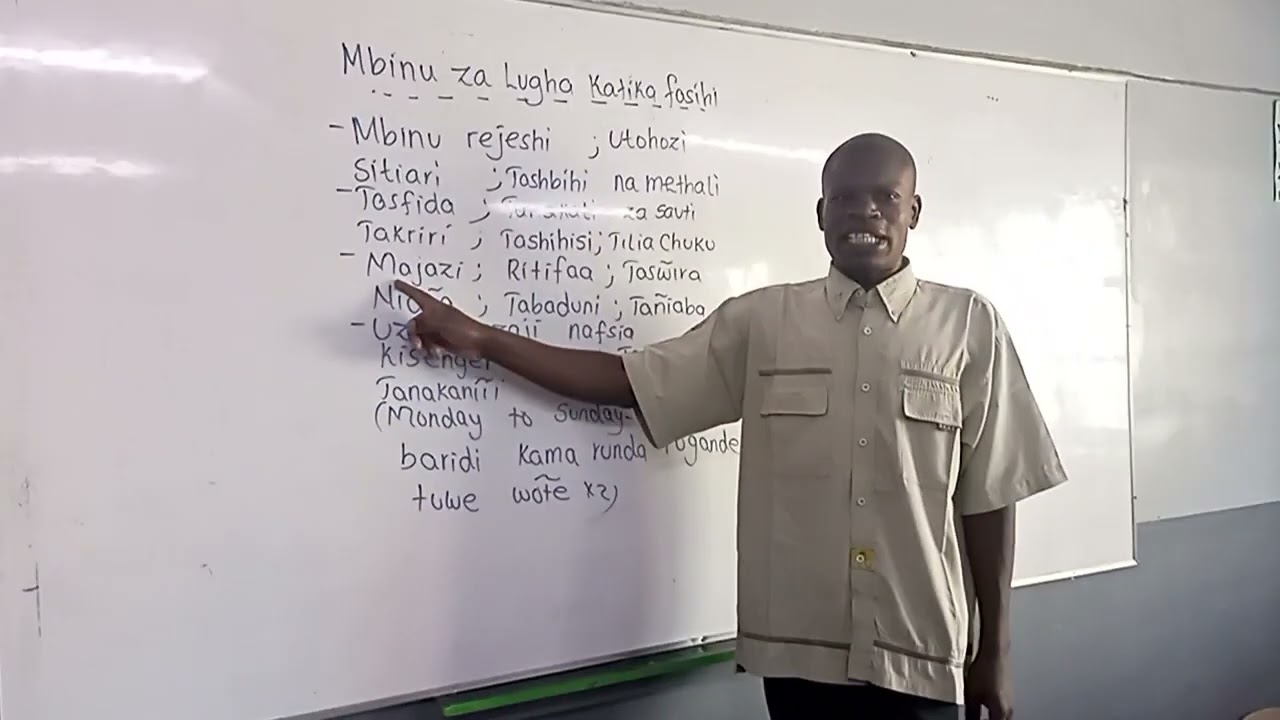 Mbinu za Lugha Katika fasihi
- Mbinu rejeshi ; Utohozi
Sitiari ; Tashbihi na methali
- Tasfida ; za sauti
Takriri ; Tashihisi ; Tilia Chuku
- Majazi ; Ritifaa ; Taswira
; Tabaduni ; Taniaba
- nafsia
Tanakanili
(Monday to Sunday-
baridi kama runda
tuwe wote x2)